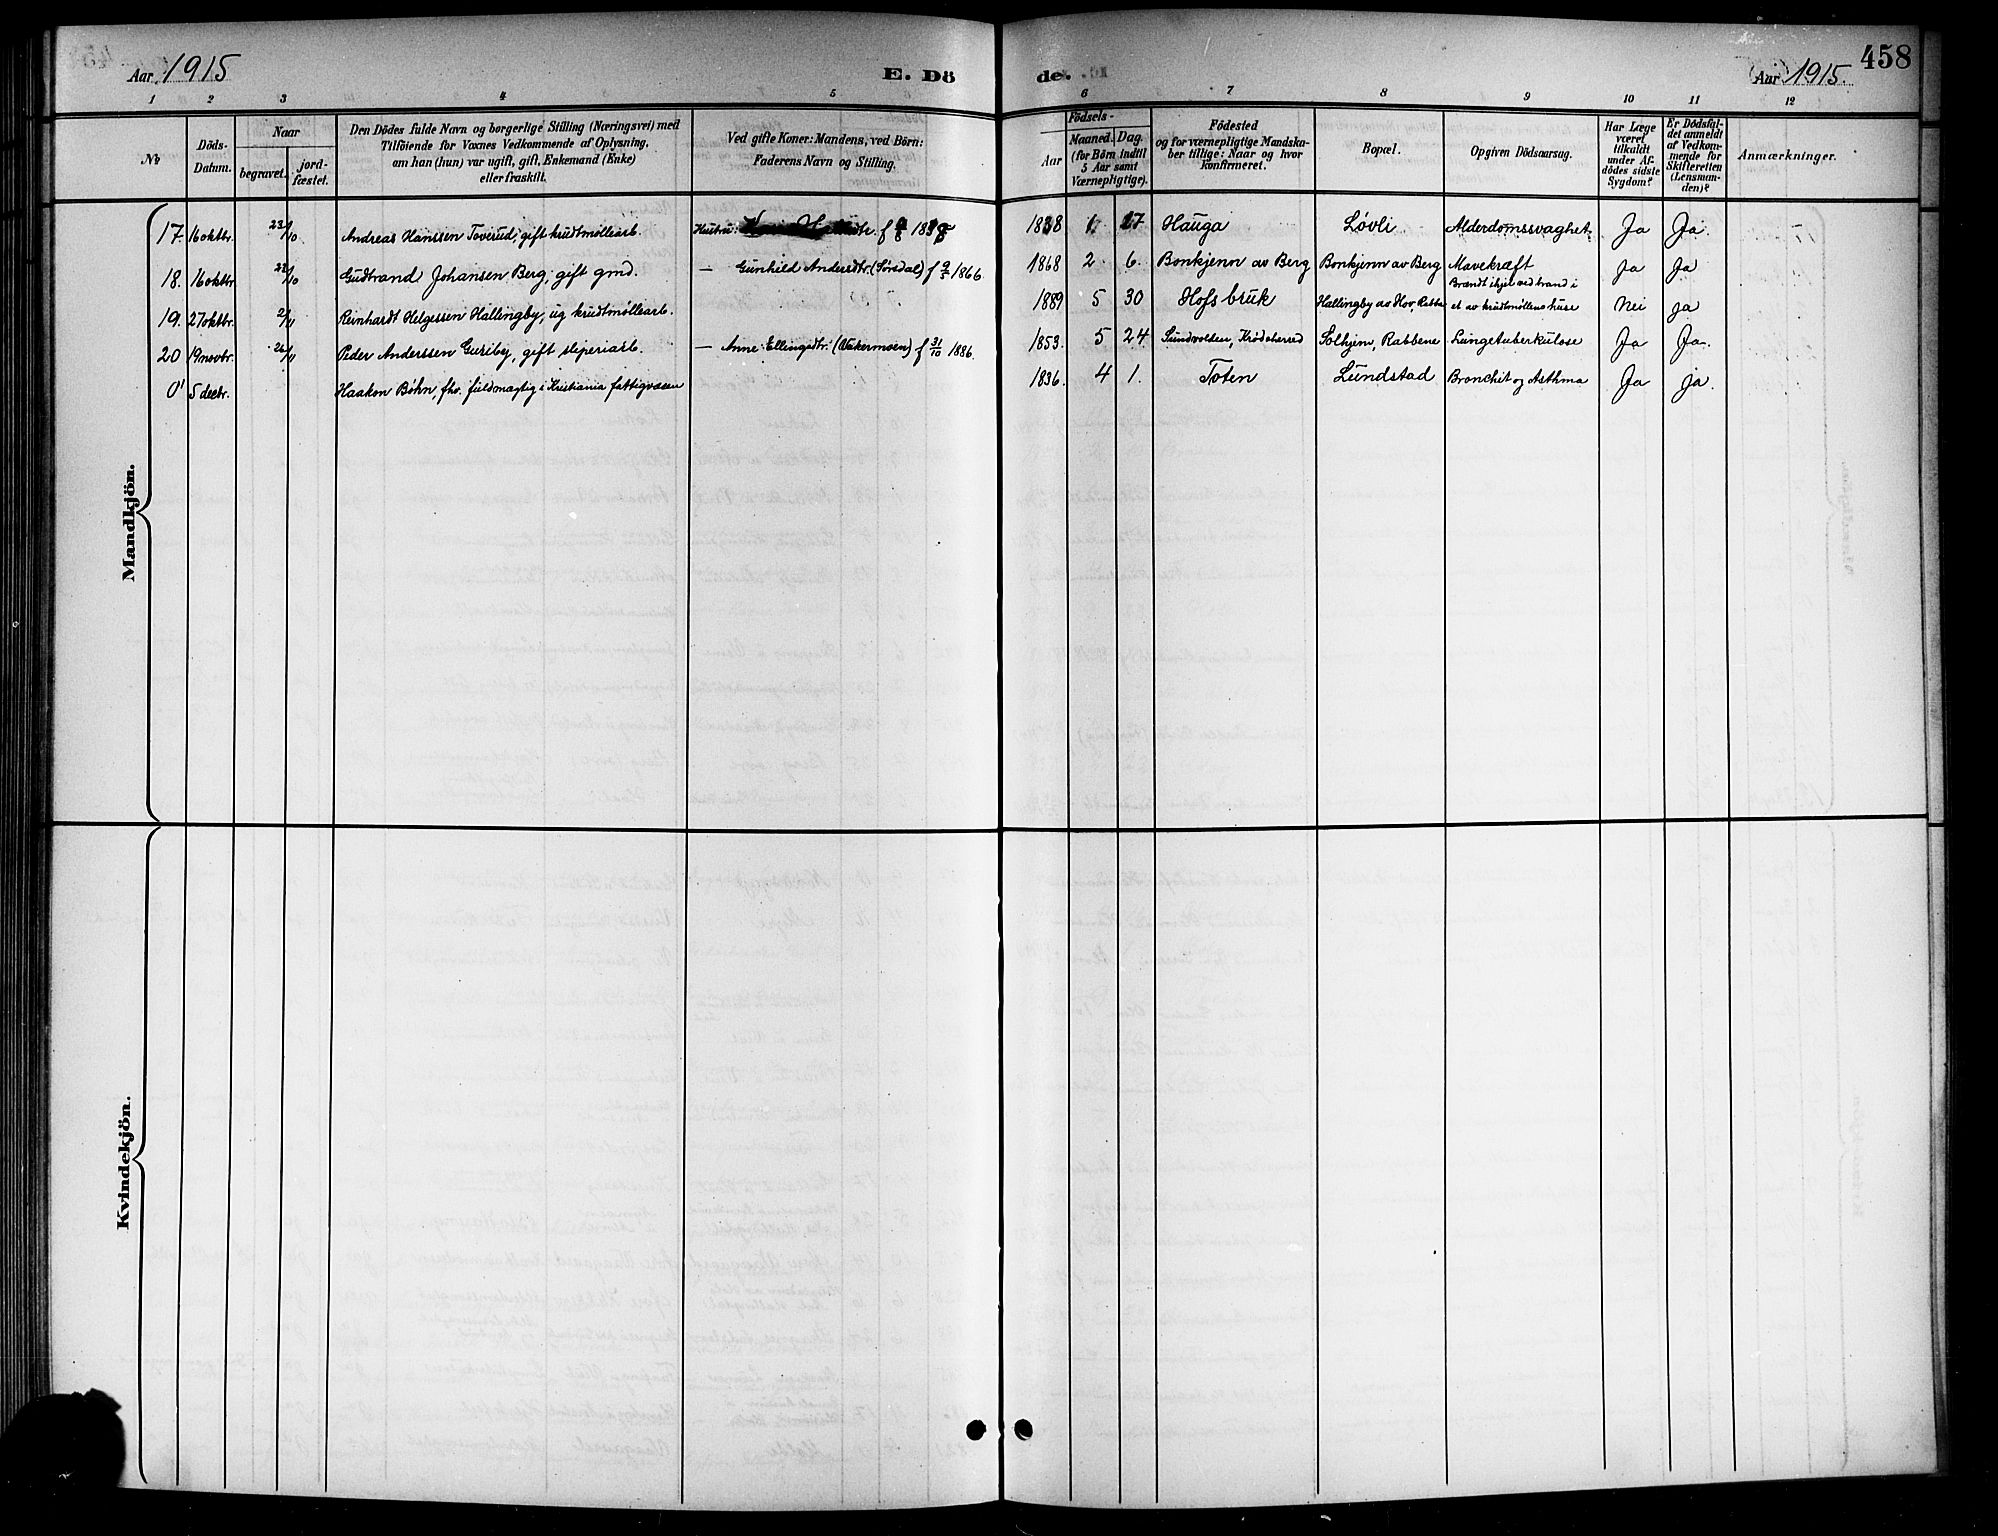 Aar 1915
E. Dö
de.
Aar 1915.
458
1 2 3 4 5 6 7 8 9 10 11 12
No
Döds-
Datum.
Naar
begravet.
jord-
fæstet.
Den Dödes fulde Navn og borgerlige Stilling (Næringsvei) med
Tilföiende for Voxnes Vedkommende af Oplysning,
om han (hun) var ugift, gift, Enkemand (Enke)
eller fraskilt.
Ved gifte Koner: Mandens, ved Börn:
Faderens Navn og Stilling.
Födsels-
Aar
Maaned.
Dag.
(for Börn indtil
5 Aar samt
Værnepligtige).
Födested
og for værnepligtige Mandska-
ber tillige: Naar og hvor
konfirmeret.
Bopæl.
Opgiven Dödsaarsag.
Har Læge
været
tilkaldt
under Af-
dödes sidste
Sygdom?
Er Dödsfal-
det anmeldt
af Vedkom-
mende for
Skifteretten
(Lensman-
den)?
Anmærkninger.
Mandkjön.
17. 16 oktbr. 23/10 Andreas Hanssen Toverud, gift krudtmøllearb. Hustru: 1838 1 17 Hauga Løvli Alderdomssvaghet Ja Ja.
18. 16 oktbr. 23/10 Gudtrand Johansen Berg, gift gmd. — Gunhild Andersdtr. (Sørsdal) f 9/2 1866. 1868 2 6. Bonkjenn av Berg Bonkjenn av Berg Mavekræft Ja Ja
19. 27 oktbr. 2/11 Reinhardt Helgessen Hallingby, ug krudtmøllearb. 1889 5 30 Hofs bruk Hallingby av Hov, Brændt ihjel ved brand i
et av krudtmøllens huse Nei ja
20 19 novbr. 26/11 Peder Anderssen Guriby, gift sliperiarb. — Anne Ellingsdtr. (Vakermoen) f 31/10 1886. 1853. 5 24 Sundvolden, Krødsherred Solhjem, Rabbene Lungetuberkulose Ja Ja.
0 5 decbr. Haakon Bøhn, fhv. fuldmægtig i Kristiania fattigvæsen 1836. 4 1. Toten Lundstad Bronchit og Asthma Ja ja.
Kvindekjön.